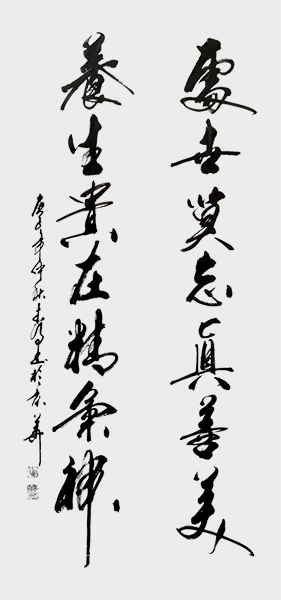 處世莫忘真善美
養生貴在精氣神
庚子年仲秋 書於京華